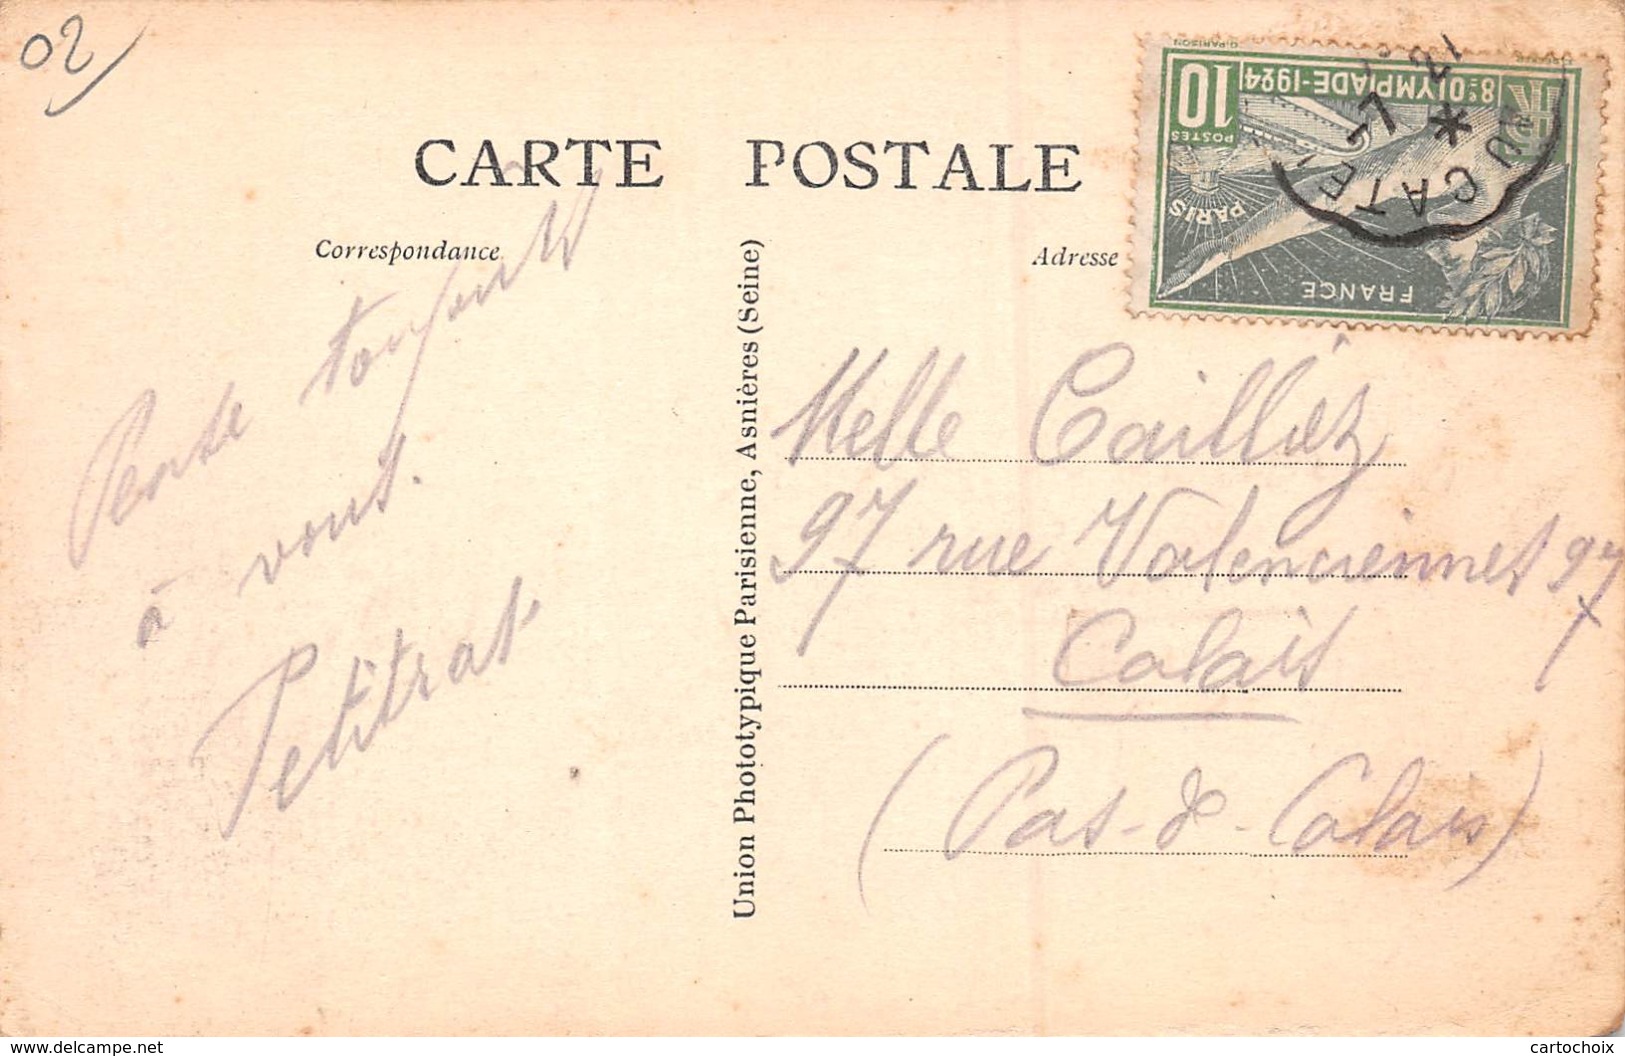 02
CARTE POSTALE
Correspondance
Adresse
G. PARISON
10
POSTES
8e OLYMPIADE-1924
PARIS
FRANCE
CATE
12
Pense toujours
à vous.
Petitrat
Union Phototypique Parisienne, Asnières (Seine)
Melle Cailliez
97 rue Valenciennes 97
Calais
(Pas-de-Calais)
www.delcampe.net
cartochoix